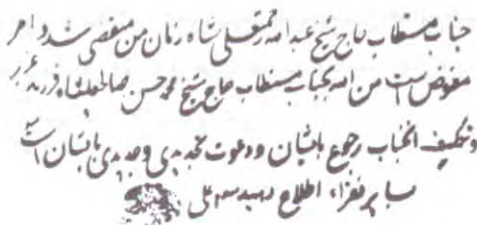 جناب مستطاب حاج شیخ عبدالله رحمتعلی شاه زمان من منقضی شد و امر
مفوض است من الله بجناب مستطاب حاج شیخ محمد حسن صالحعلیشاه فرزند
و تکلیف آنجناب رجوع بایشان و دعوت تجدیدی و جدیدی بایشان است
بسایر فقراء اطلاع دهید